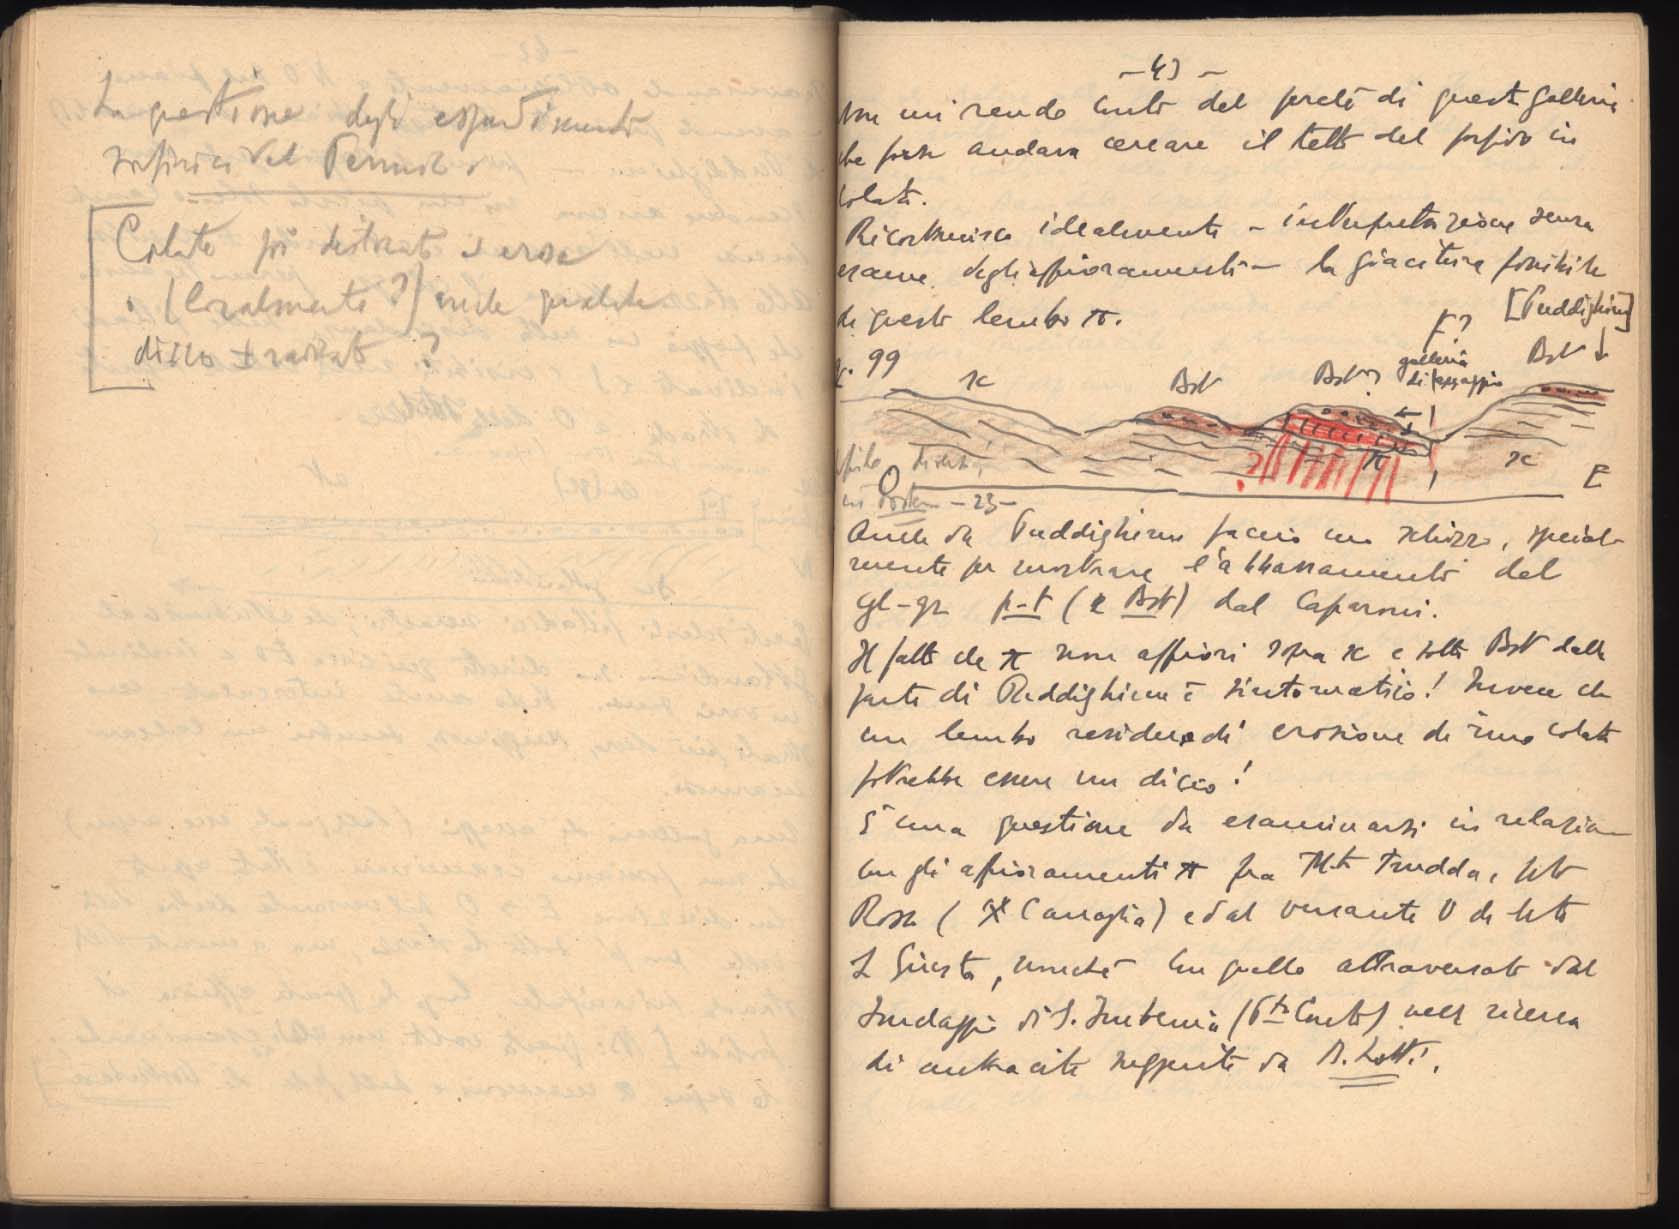 La questione degli espandimenti
porfirici del Permico.
Colate poi destruct e erose
(localmente?) onde qualche
dicco ± radicato ?
- 43 -
Non mi rendo conto del perchè di questa galleria
che forse andava cercare il tetto del porfido in
colata.
Ricostruisco idealmente - interpretazione senza
esame degli affioramenti - la giacitura possibile
di questo lembo π.
F?
[Puddighinu]
F. 99
ϰ
Bst
Bst
galleria
di assaggio
Bst
π
ϰ
O
E
- 23 -
Anche da Puddighinu faccio un schizzo, special-
mente per mostrare l'abbassamento del
gl-gr p-t (e Bst) dal Caparoni.
Il fatto che π non affiori fra ϰ e sotto Bst dalla
parte di Puddighinu è sintomatico! Invece che
un lembo residuo di erosione di una colata
potrebbe essere un dicco!
È una questione da esaminarsi in relazione
con gli affioramenti π fra M.te Trudda,
Rossa (X Canaglia) ed al versante O di M.te
S Giusta, nonchè con quello attraversato dal
sondaggio di S. Imbenia (Pto Conte) nella ricerca
di antracite suggerita da B. Lotti.